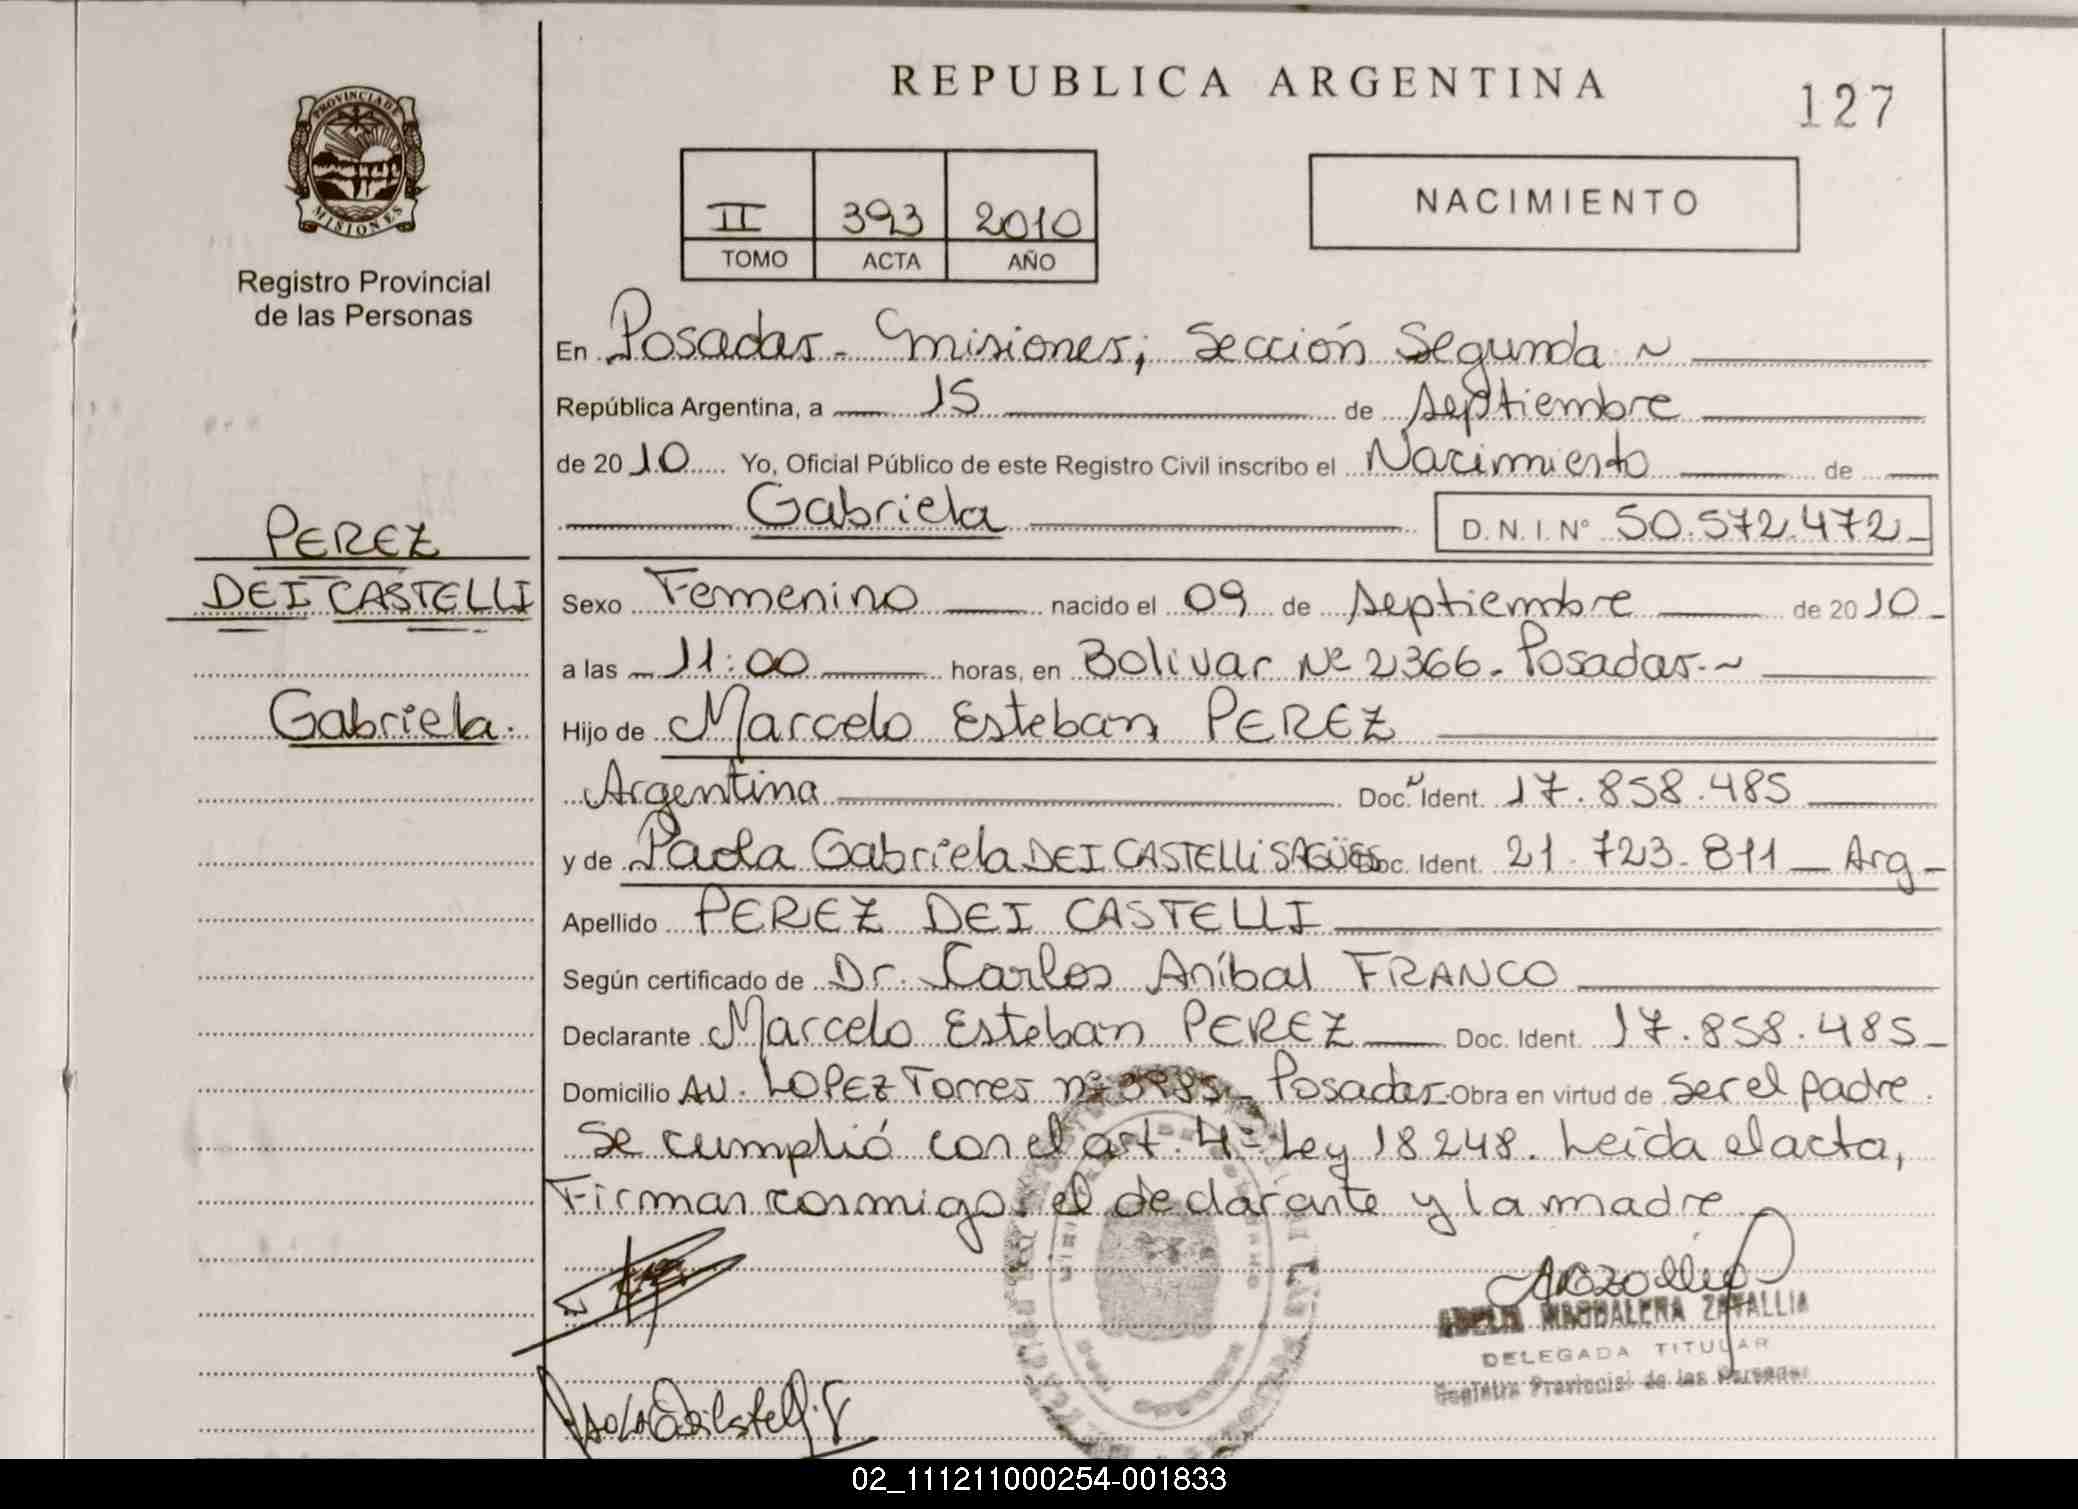 PROVINCIA DE
MISIONES
Registro Provincial
de las Personas
REPUBLICA ARGENTINA
127
II 393 2010
TOMO ACTA AÑO
NACIMIENTO
En Posadas - Misiones; Sección Segunda ~
República Argentina, a 15 de septiembre
de 2010 Yo, Oficial Público de este Registro Civil inscribo el Nacimiento de
Gabriela D.N.I. Nº 50.572.472
PEREZ
DEI CASTELLI
Gabriela.
Sexo Femenino nacido el 09 de septiembre de 2010
a las 11:00 horas, en Bolivar Nº 2366 - Posadas - ~
Hijo de Marcelo Esteban PEREZ
Argentina Doc. Ident. 17.858.485
y de Paola Gabriela DEI CASTELLI SAGÜES Doc. Ident. 21.723.811 - Arg -
Apellido PEREZ DEI CASTELLI
Según certificado de Dr. Carlos Aníbal FRANCO
Declarante Marcelo Esteban PEREZ Doc. Ident. 17.858.485
Domicilio AV. LOPEZ Torres nº 3985 - Posadas - Obra en virtud de ser el padre.
Se cumplió con el art. 4º Ley 18248. Leída el acta,
Firman conmigo el declarante y la madre
MAGDALENA ZATALLIA
DELEGADA TITULAR
Registro Provincial de las Personas
02_111211000254-001833